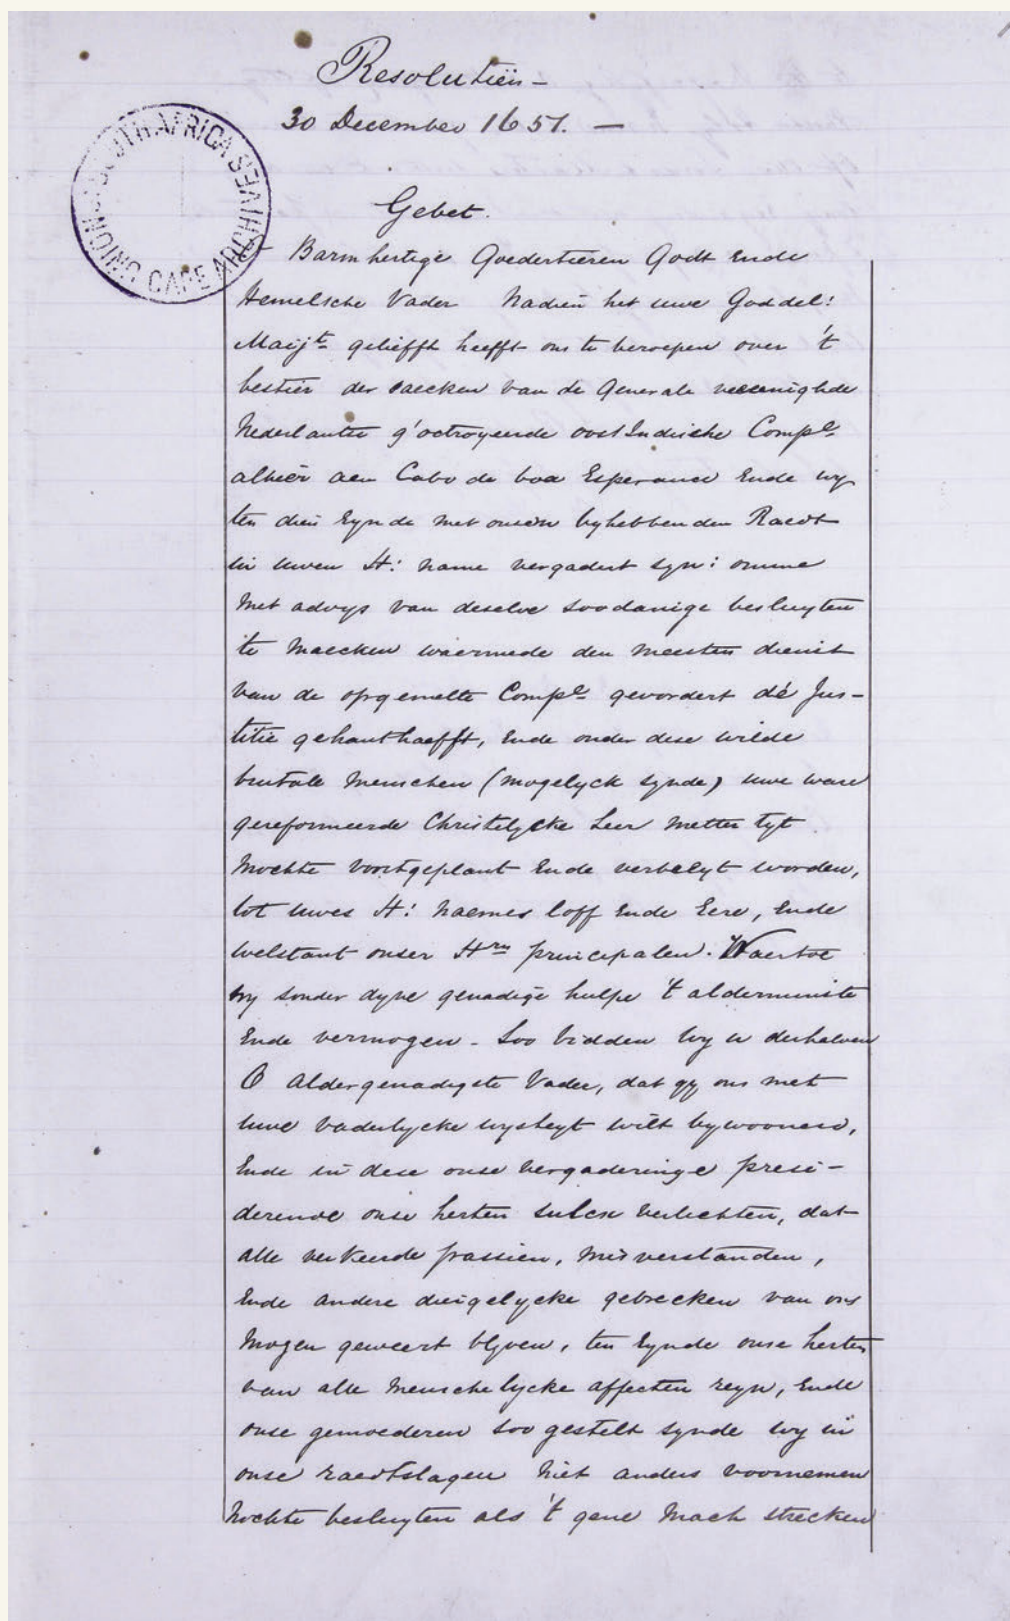 Resolutiën –
30 December 1651. —
UNION OF SOUTH AFRICA
CAPE ARCHIVES
Gebet.
Barmhertige Goedertieren Godt Ende
Hemelsche Vader Nadien het uwe Goddel:
Maijt. gelieft heefft ons te beroepen over 't
bestier der saecken van de Generale vereenighde
Nederlantse g'octroyeerde oostIndische Compe.
alhier aen Cabo de boa Esperance Ende wy
ten dien Eynde met onsen byhebbenden Raedt
in uwen H: name vergadert syn: omme
met advys van deselve soodanige besluyten
te maecken waermede den meesten dienst
van de opgemelte Compe. gevordert de Jus–
titie gehanthaefft, Ende onder dese wilde
brutale menschen (mogelyck synde) uwe ware
gereformeerde Christelycke Leer metter tyt
mochte voortgeplant Ende verbelyt worden,
tot uwes H: naemes loff Ende Eere, Ende
welstant onser Hrn principalen. Waertoe
wy sonder dyne genadige hulpe 't alderminste
Ende vermogen – Soo bidden wy u derhalven
O aldergenadigste Vader, dat gy ons met
uwe vaderlycke wysheyt wilt bywoonen,
Ende in dese onse vergaderinge presi–
derende onse herten sulcx verlichten, dat
alle verkeerde passien, misverstanden,
Ende andere diergelycke gebrecken van ons
mogen geweert blyven, ten Eynde onse herten
van alle menschelycke affecten reyn, Ende
onse gemoederen soo gestelt synde wy in
onse raedtslagen niet anders voornemen
nochte besluyten als 't gene mach strecken